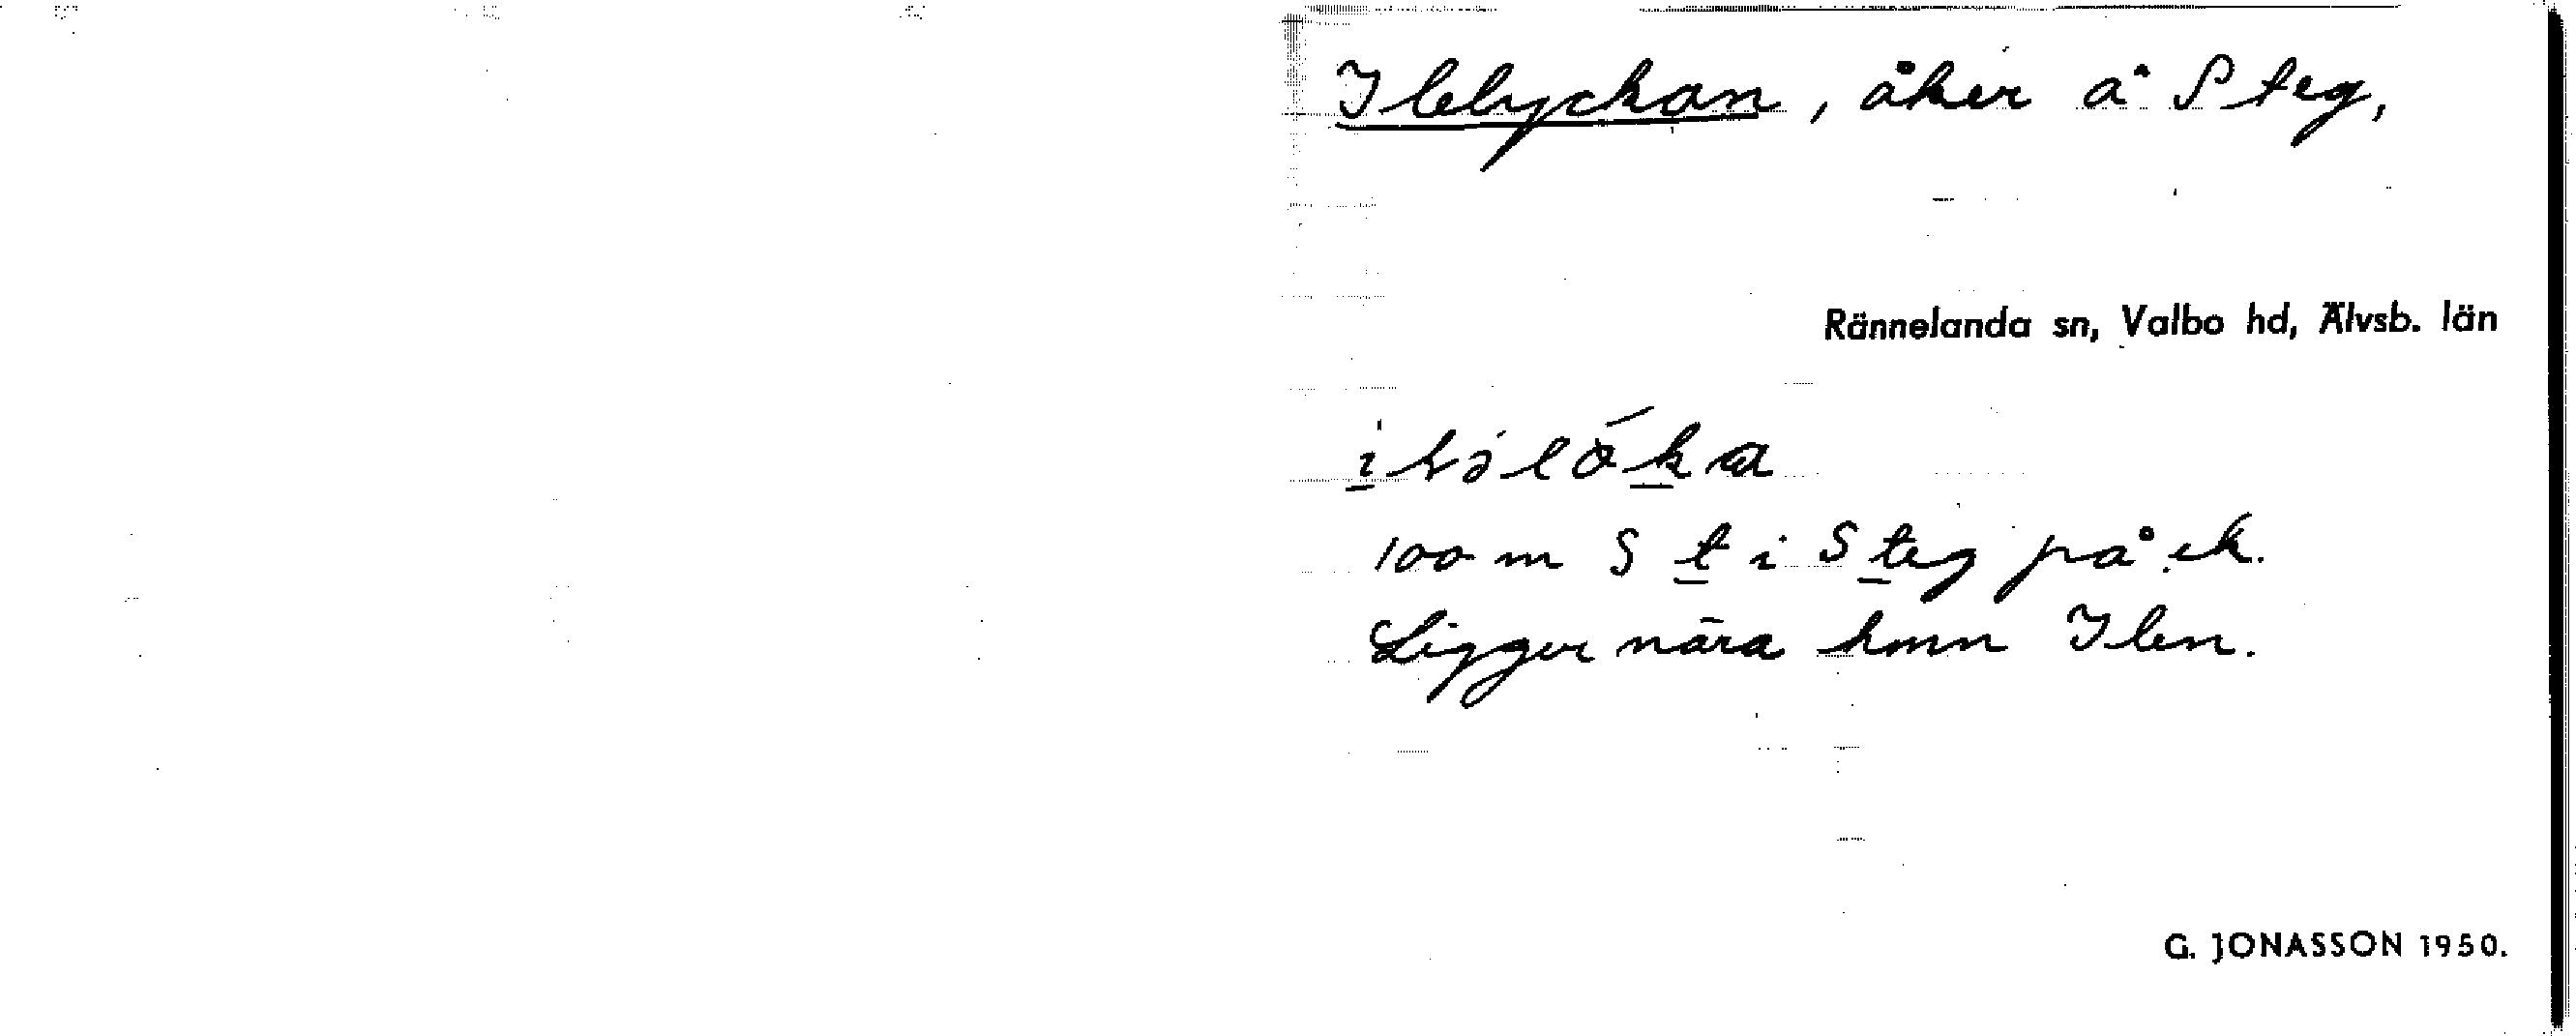 Ilelyckan, åker å Steg,
Rännelanda sn, Valbo hd, Älvsb. län
100 m S t i Steg på ek.
Ligger nära hmn Ilen.
G. JONASSON 1950.